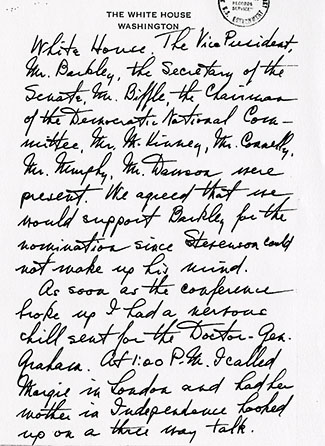 THE WHITE HOUSE
WASHINGTON
White House. The Vice President,
Mr. Barkley, the Secretary of the
Senate, Mr. Biffle, the Chairman
of the Democratic National Com-
mittee, Mr. McKinney, Mr. Connelly,
Mr. Murphy, Mr. Dawson were
present. We agreed that we
would support Barkley for the
nomination since Stevenson could
not make up his mind.
As soon as the conference
broke up I had a nervous
chill sent for the Doctor-Gen.
Graham. At 1:00 P.M. I called
Margie in London and had her
mother in Independence hooked
up on a three way talk.